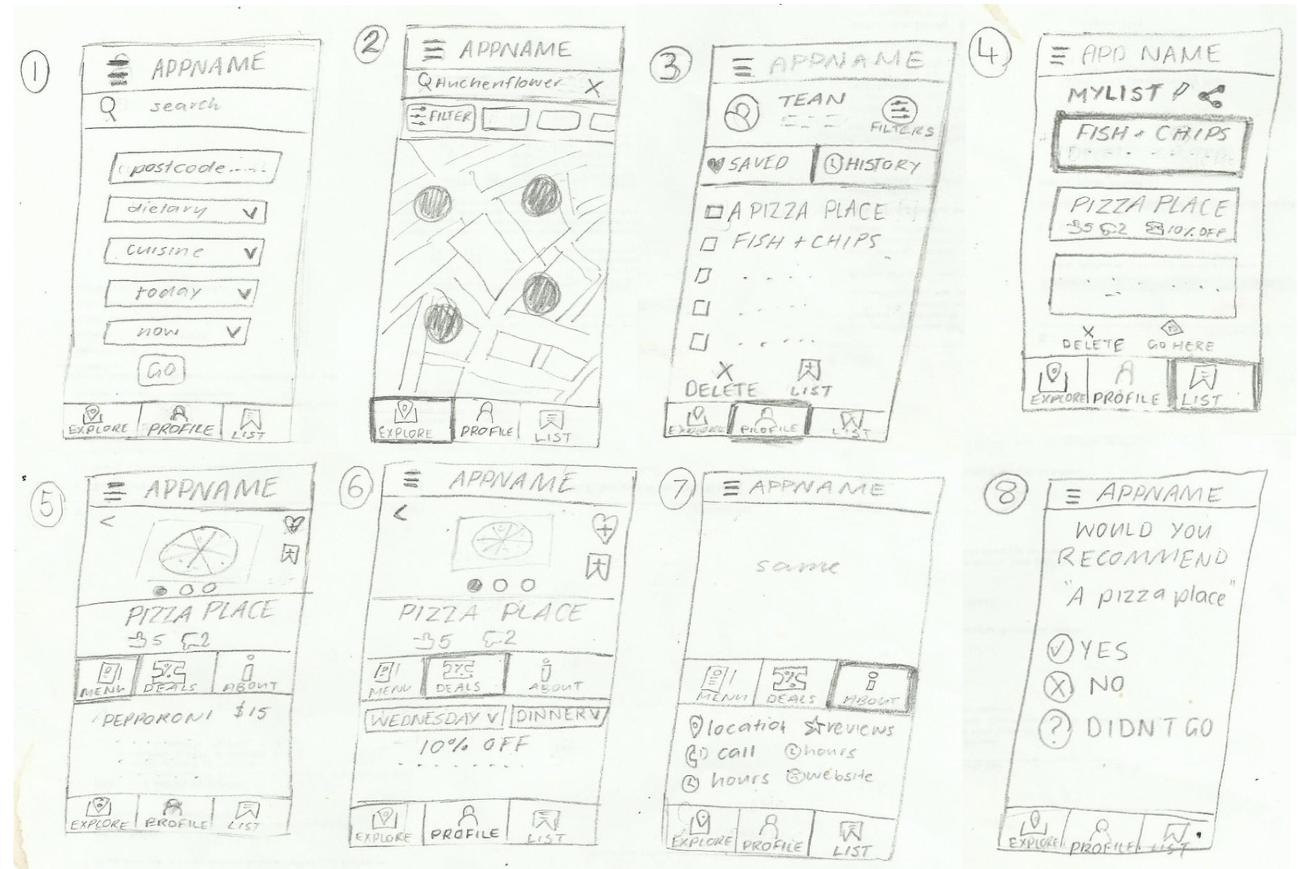 1
APPNAME
search
postcode.....
dietary
cuisine
today
now
GO
EXPLORE PROFILE LIST
2
APPNAME
Huchenflower X
FILTER
EXPLORE PROFILE LIST
3
APPNAME
TEAN
FILTERS
SAVED HISTORY
A PIZZA PLACE
FISH + CHIPS
DELETE LIST
EXPLORE PROFILE LIST
4
APP NAME
MYLIST
FISH + CHIPS
PIZZA PLACE
5 2 10% OFF
X
DELETE GO HERE
EXPLORE PROFILE LIST
5
APPNAME
PIZZA PLACE
5 2
MENU DEALS ABOUT
PEPPORONI $15
EXPLORE PROFILE LIST
6
APPNAME
PIZZA PLACE
5 2
MENU DEALS ABOUT
WEDNESDAY DINNER
10% OFF
EXPLORE PROFILE LIST
7
APPNAME
same
MENU DEALS ABOUT
location reviews
call hours
hours website
EXPLORE PROFILE LIST
8
APPNAME
WOULD YOU
RECOMMEND
"A pizza place"
YES
NO
? DIDNT GO
EXPLORE PROFILE LIST